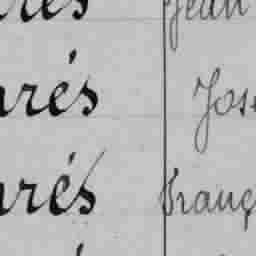 rés Jean
rés José
rés Franç